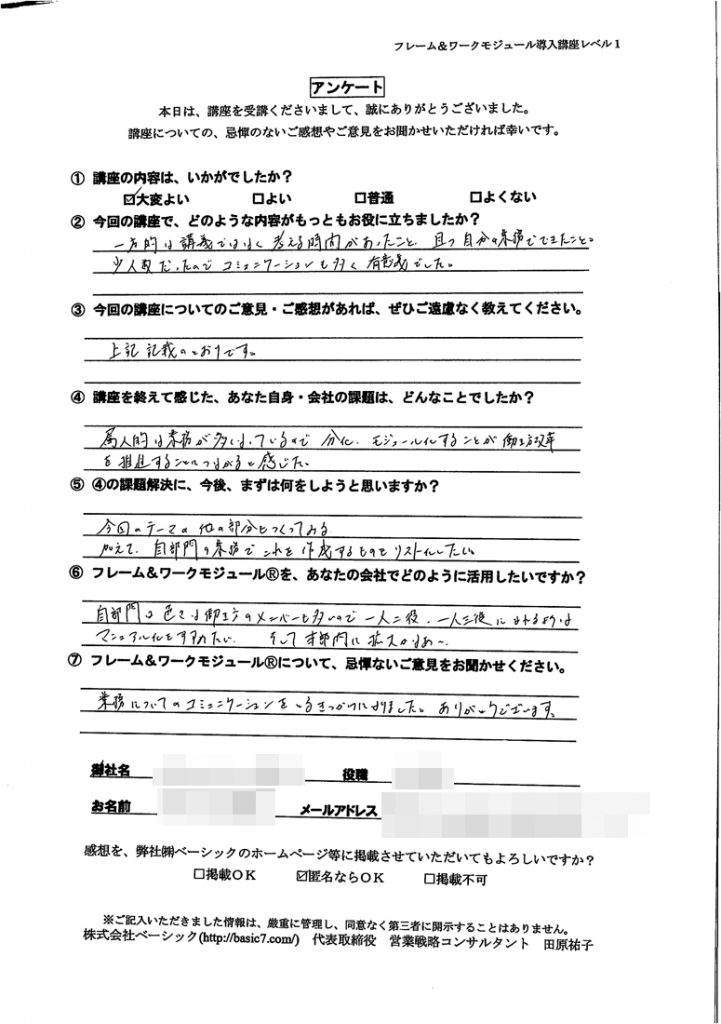 フレーム＆ワークモジュール導入講座レベル１
アンケート
本日は、講座を受講くださいまして、誠にありがとうございました。
講座についての、忌憚のないご感想やご意見をお聞かせいただければ幸いです。
① 講座の内容は、いかがでしたか？
☑大変よい　□よい　□普通　□よくない
② 今回の講座で、どのような内容がもっともお役に立ちましたか？
一方的な講義ではなく考える時間があったこと、且つ自分の業務でできたこと。
少人数だったのでコミュニケーションも多く有意義でした。
③ 今回の講座についてのご意見・ご感想があれば、ぜひご遠慮なく教えてください。
上記記載のとおりです。
④ 講座を終えて感じた、あなた自身・会社の課題は、どんなことでしたか？
属人的な業務が多くなっているので分化、モジュール化することが働き方改革
を推進することにつながると感じた。
⑤ ④の課題解決に、今後、まずは何をしようと思いますか？
今回のテーマの他の部分もつくってみる
加えて、自部門の業務でこれを作成するものをリスト化したい
⑥ フレーム＆ワークモジュール®を、あなたの会社でどのように活用したいですか？
自部門は色々な働き方のメンバーも多いので一人二役、一人三役になれるような
マニュアル化をすすめたい　そして本部内に拡大かなあ～
⑦ フレーム＆ワークモジュール®について、忌憚ないご意見をお聞かせください。
業務についてのコミュニケーションをとるきっかけになりました。ありがとうございます。
御社名　役職
お名前　メールアドレス
感想を、弊社㈱ベーシックのホームページ等に掲載させていただいてもよろしいですか？
□掲載ＯＫ　☑匿名ならＯＫ　□掲載不可
※ご記入いただきました情報は、厳重に管理し、同意なく第三者に開示することはありません。
株式会社ベーシック(http://basic7.com/)　代表取締役　営業戦略コンサルタント　田原祐子